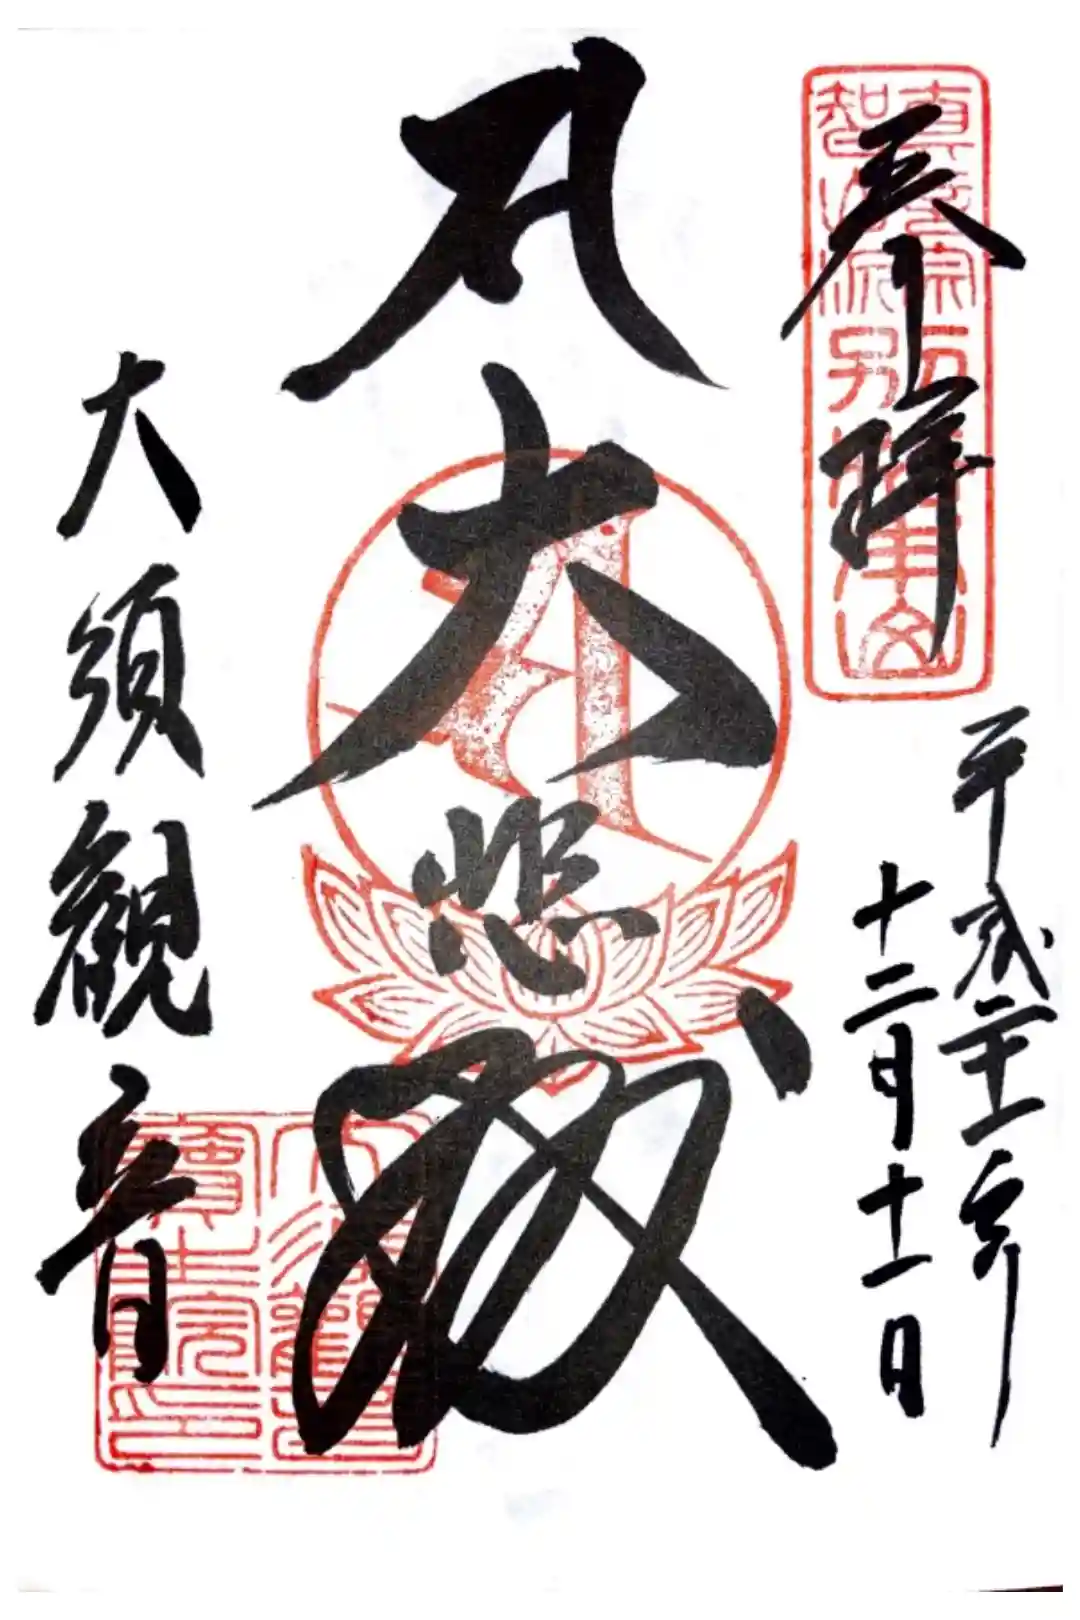 奉拝
真言宗
智山派別格本山
平成二十一年
十二月十一日
𑖭
大悲殿
大須観音
大須観音
寶生院印